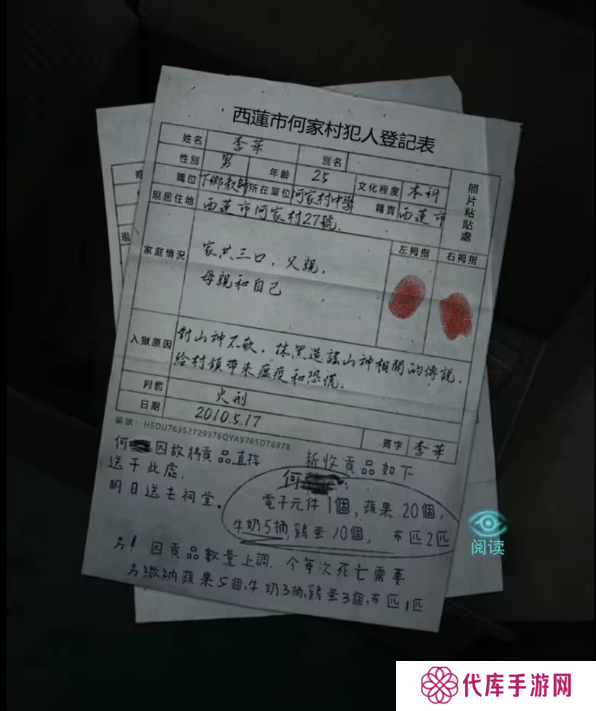 西蓮市何家村犯人登記表
姓名 李華 別名
性別 男 年齡 25 文化程度 本科
職位 下鄉教師 所在單位 何家村中學 籍貫 西蓮市
照片粘貼處
現居住地 西蓮市何家村27號
家庭情況 家共三口，父親， 左拇指 右拇指
母親和自己
入獄原因 對山神不敬，抹黑造謠山神相關的傳說，
給村鎮帶來瘟疫和恐慌，
判罰 火刑
日期 2010.5.17
編號：HSDU76352729376QYA9765D76978 簽字 李華
何 因故將貢品直接 新收貢品如下
送于此處， 何
明日送去祠堂。 電子元件1個，蘋果20個，
牛奶5抽，雞蛋10個， 布匹2匹
另！因貢品數量上調，今每次死亡需要
另繳納蘋果5個，牛奶3抽，雞蛋3個，布匹1匹
阅读
代库手游网